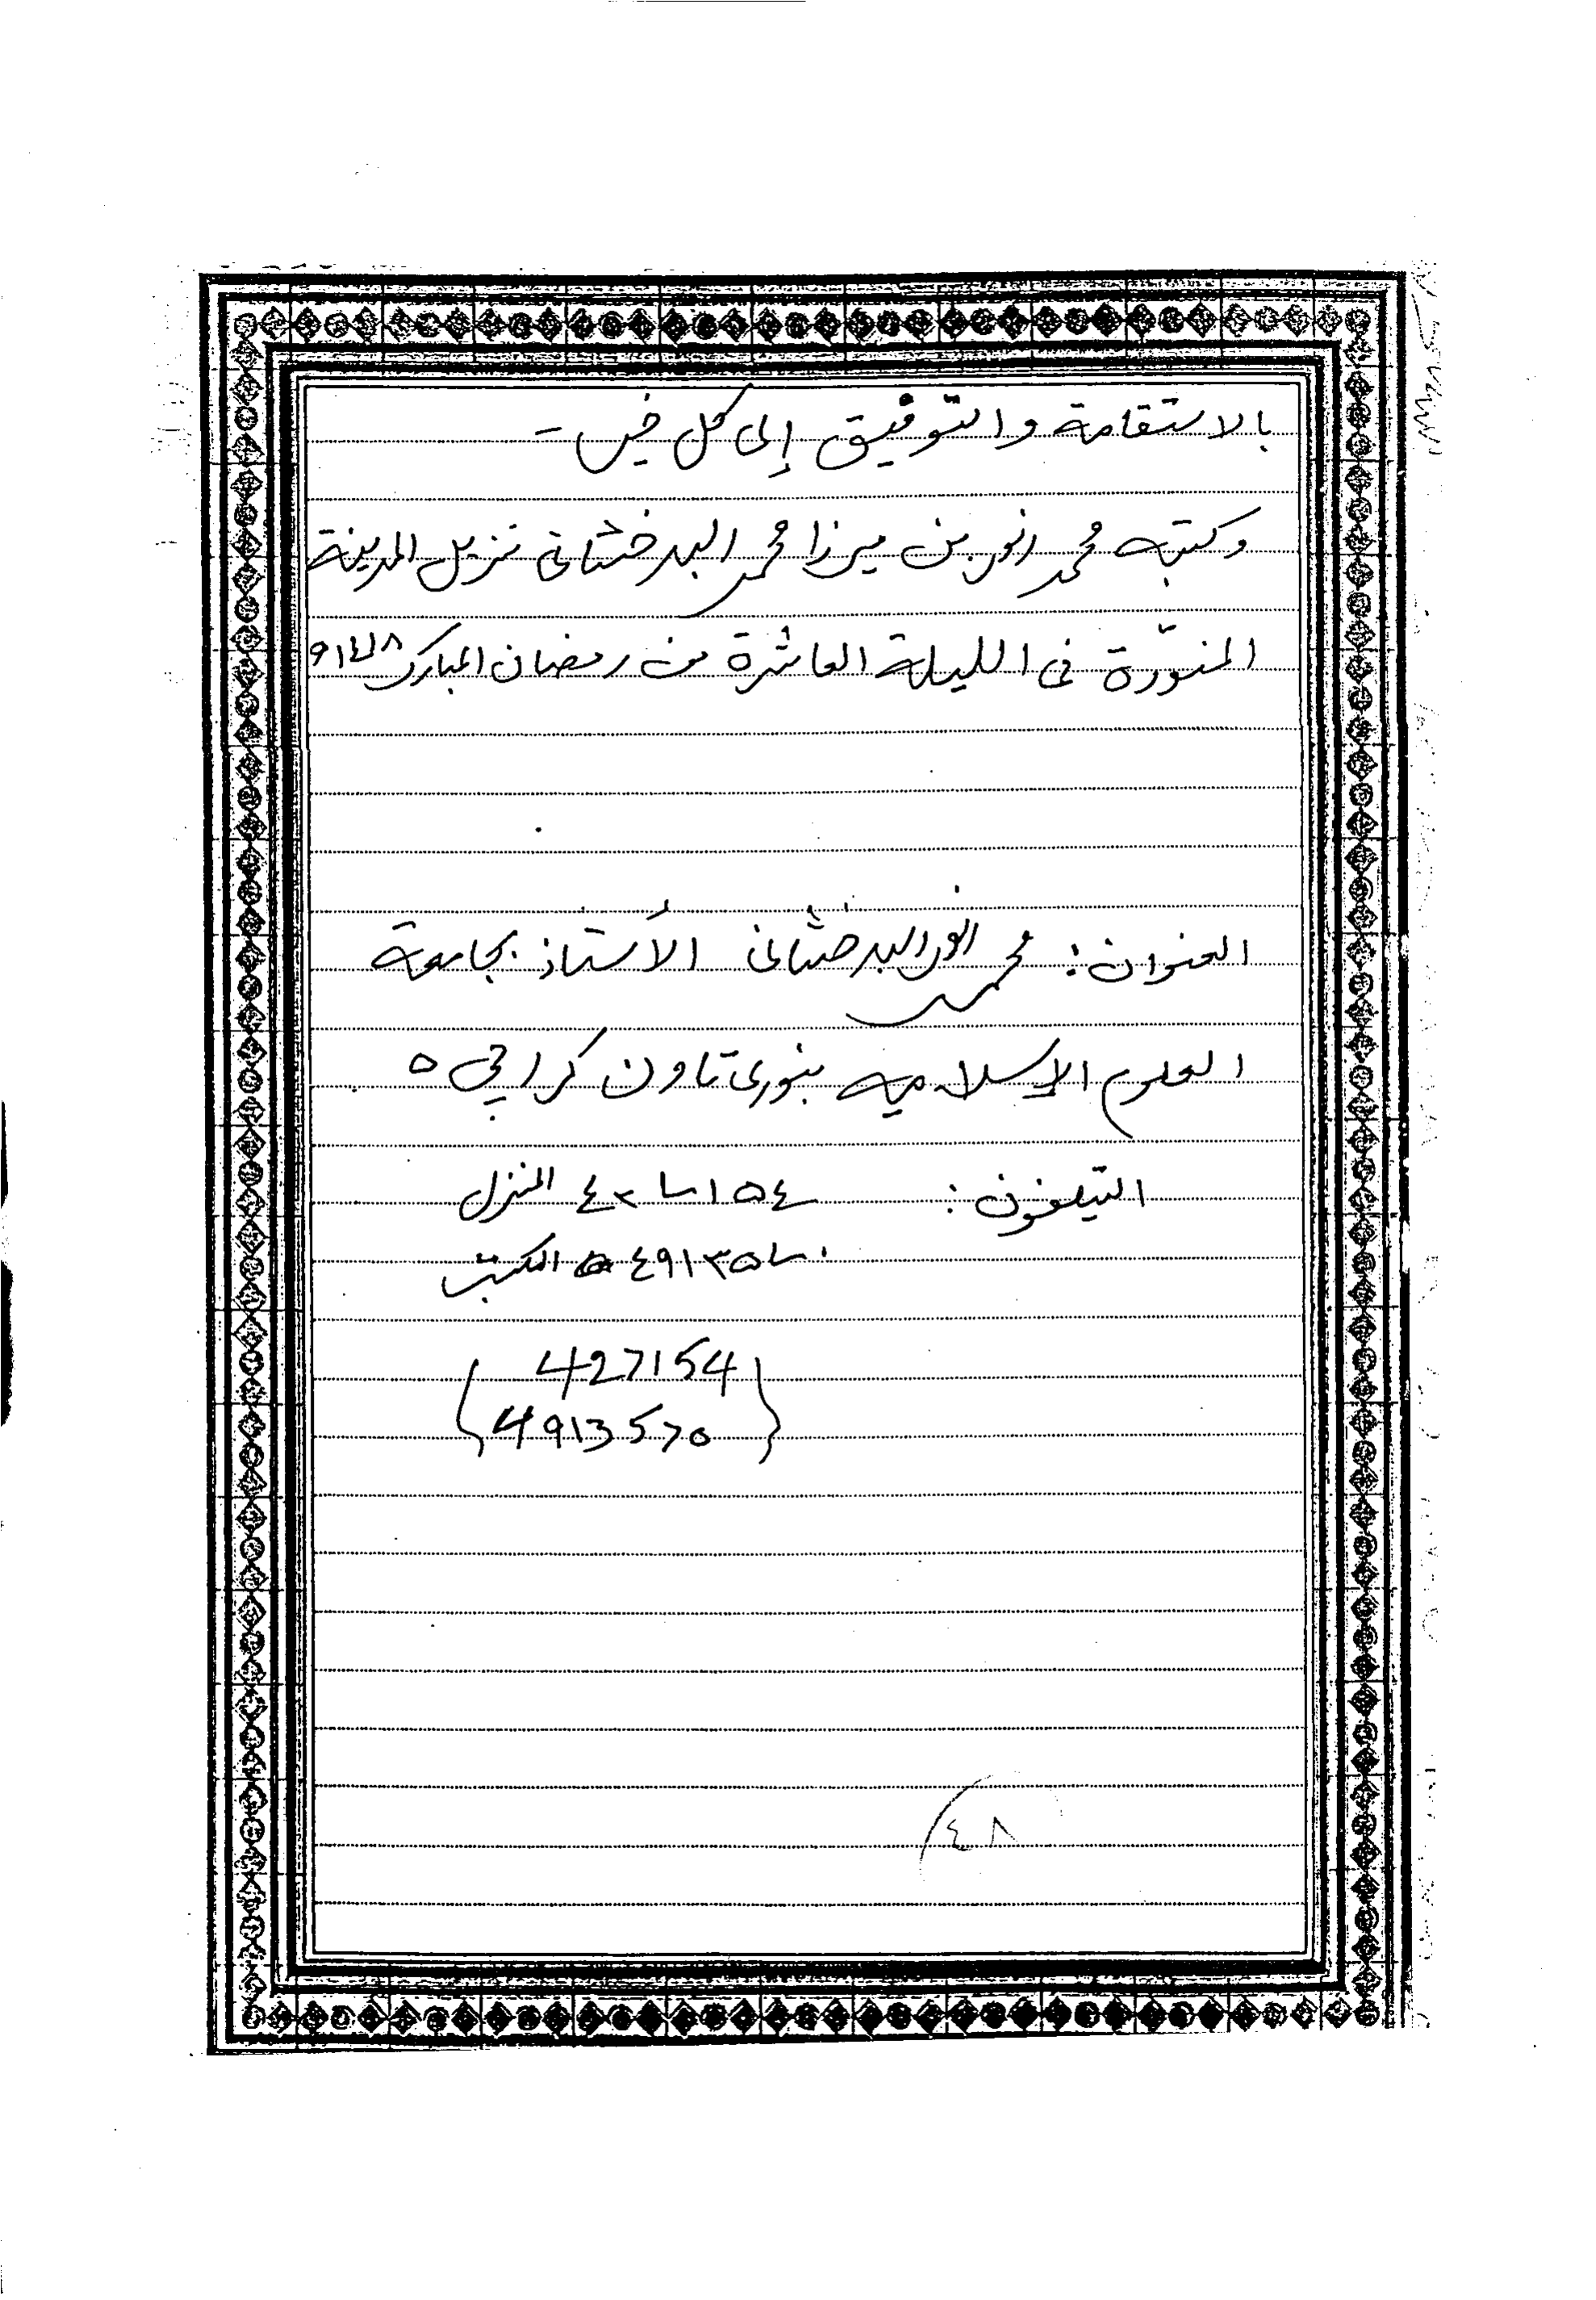 بالاستقامة والتوفيق إلى كل خير -
وكتبه محمد انور بن ميرزا محمد البدخشاني نزيل المدينة
المنوّرة في الليلة العاشرة من رمضان المبارك
العنوان: محمد انور البدخشاني الأستاذ بجامعة
العلوم الإسلامية بنوري تاون كراچي ٥
التيلفون: ٤٢٧١٥٤ المنزل
٤٩١٣٥٧٠ المكتب
427154
4913570
٤٨